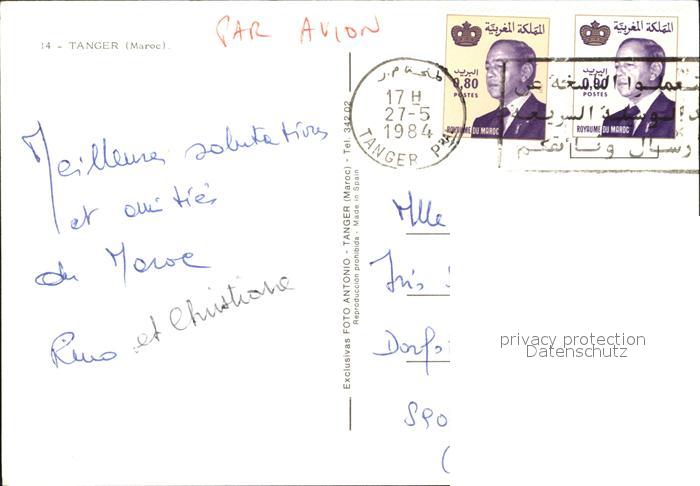 14 - TANGER (Maroc).
PAR AVION
المملكة المغربية
البريد
0,80
POSTES
ROYAUME DU MAROC
المملكة المغربية
البريد
0,80
POSTES
ROYAUME DU MAROC
طنجة
17 H
27-5
1984
TANGER Pal
Meilleures salutations
et amitiés
du Maroc
Reno et Christiane
Exclusivas FOTO ANTONIO - TANGER (Maroc) - Tel. 342 02
Reproducción prohibida - Made in Spain
Mlle
Iris
Dorfs
privacy protection
Datenschutz